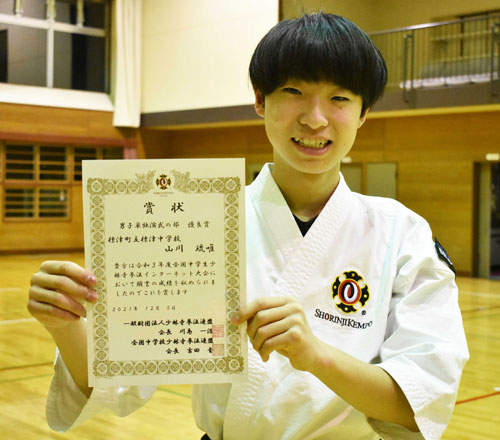 賞状
男子単独演武の部 優良賞
標津町立標津中学校
山川 琉唯
貴方は令和3年度全国中学生少
林寺拳法インターネット大会に
おいて頭書の成績を収められま
したのでこれを賞します
2021年 12月 5日
一般財団法人少林寺拳法連盟
会長 川島 一浩
全国中学校少林寺拳法連盟
会長 吉田
SHORINJI KEMPO